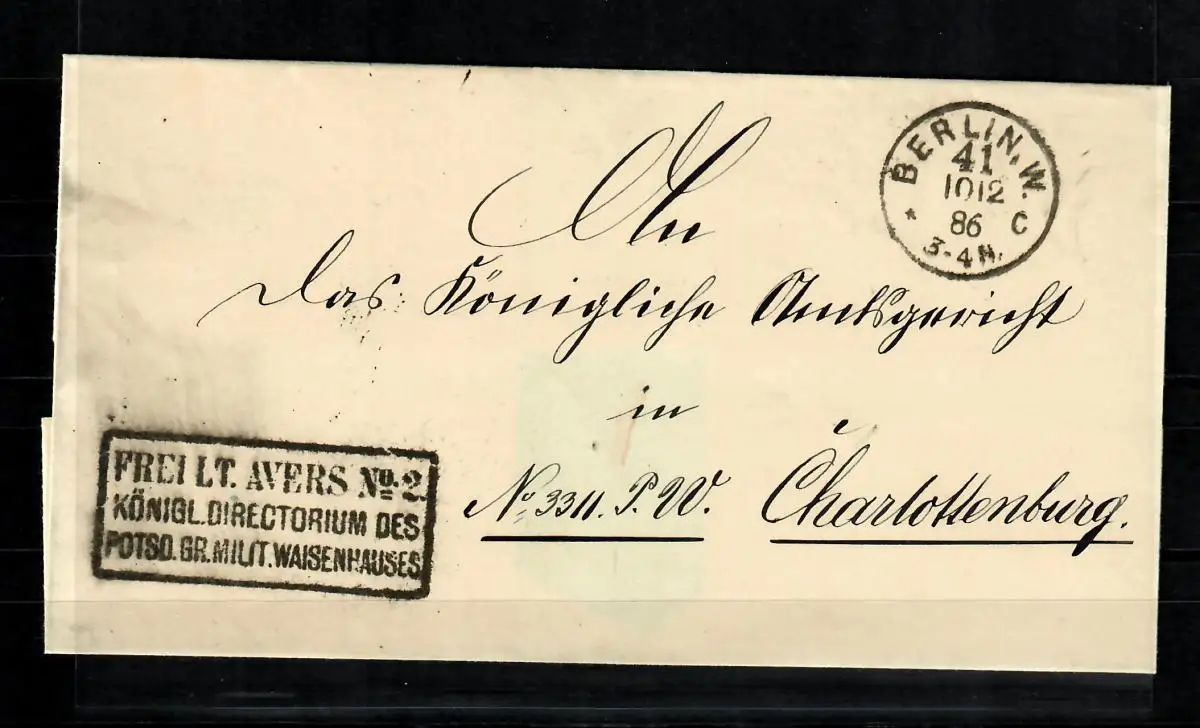 BERLIN, W.
41
10 12
86
* C
3-4 N.
An
das Königliche Amtsgericht
in
No. 3311. P. W. Charlottenburg.
FREI LT. AVERS No. 2.
KÖNIGL. DIRECTORIUM DES
POTSD. GR. MILIT. WAISENHAUSES